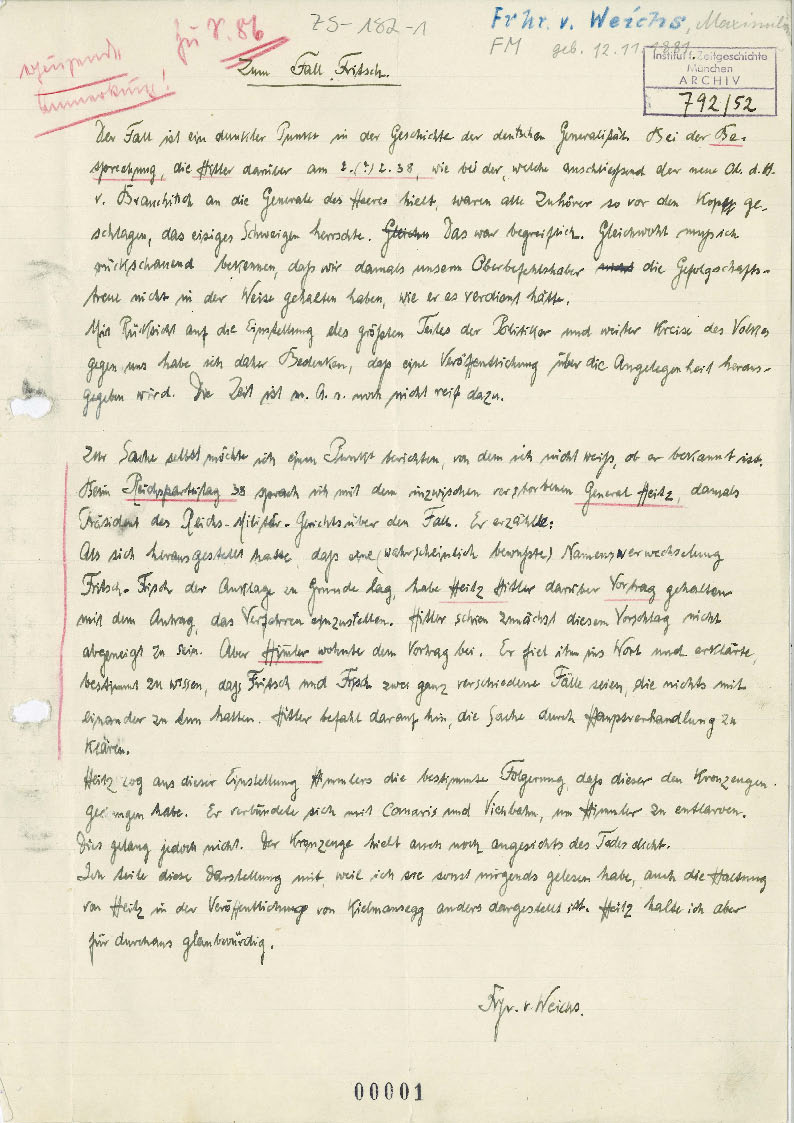 zu S. 86
ZS-182-1
Frhr. v. Weichs, Maximilian
FM geb. 12.11.1881
ergänzende
Anmerkung!
Institut f. Zeitgeschichte
München
ARCHIV
792/52
Zum Fall Fritsch.
Der Fall ist ein dunkler Punkt in der Geschichte der deutschen Generalität. Bei der Be-
sprechung, die Hitler darüber am 2.(?) 2. 38, wie bei der, welche anschließend der neue Ob. d. H.
v. Brauchitsch an die Generale des Heeres hielt, waren alle Zuhörer so vor den Kopf ge-
schlagen, das eisiges Schweigen herrschte. Das war begreiflich. Gleichwohl muß ich
rückschauend bekennen, daß wir damals unserm Oberbefehlshaber die Gefolgschafts-
treue nicht in der Weise gehalten haben, wie er es verdient hätte.
Mit Rücksicht auf die Einstellung des größten Teiles der Politiker und weiter Kreise des Volkes
gegen uns habe ich daher Bedenken, daß eine Veröffentlichung über die Angelegenheit heraus-
gegeben wird. Die Zeit ist m. A. n. noch nicht reif dazu.
Zur Sache selbst möchte ich einen Punkt berichten, von dem ich nicht weiß, ob er bekannt ist.
Beim Reichsparteitag 38 sprach ich mit dem inzwischen verstorbenen General Heitz, damals
Präsident des Reichs-Militär-Gerichts über den Fall. Er erzählte:
Als sich herausgestellt hatte, daß eine (wahrscheinlich bewußte) Namensverwechselung
Fritsch-Frisch der Anklage zu Grunde lag, habe Heitz Hitler darüber Vortrag gehalten
mit dem Antrag, das Verfahren einzustellen. Hitler schien zunächst diesem Vorschlag nicht
abgeneigt zu sein. Aber Himler wohnte dem Vortrag bei. Er fiel ihm ins Wort und erklärte,
bestimmt zu wissen, daß Fritsch und Frisch zwei ganz verschiedene Fälle seien, die nichts mit
einander zu tun hatten. Hitler befahl darauf hin, die Sache durch Hauptverhandlung zu
klären.
Heitz zog aus dieser Einstellung Himmlers die bestimmte Folgerung, daß dieser den Kronzeugen
gedungen habe. Er verbündete sich mit Canaris und Viebahn, um Himmler zu entlarven.
Dies gelang jedoch nicht. Der Kronzeuge hielt auch noch angesichts des Todes dicht.
Ich teile diese Darstellung mit, weil ich sie sonst nirgends gelesen habe, auch die Haltung
von Heitz in der Veröffentlichung von Kielmansegg anders dargestellt ist. Heitz halte ich aber
für durchaus glaubwürdig.
Frhr. v. Weichs.
00001